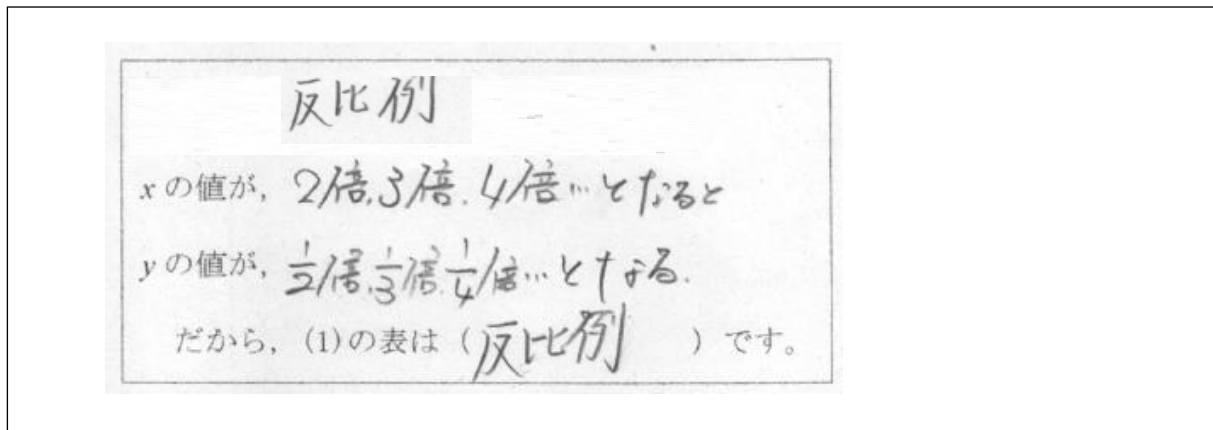 反比例
xの値が, 2倍,3倍,4倍…となると
yの値が, 1/2倍,1/3倍,1/4倍…となる.
だから, (1)の表は (反比例) です。